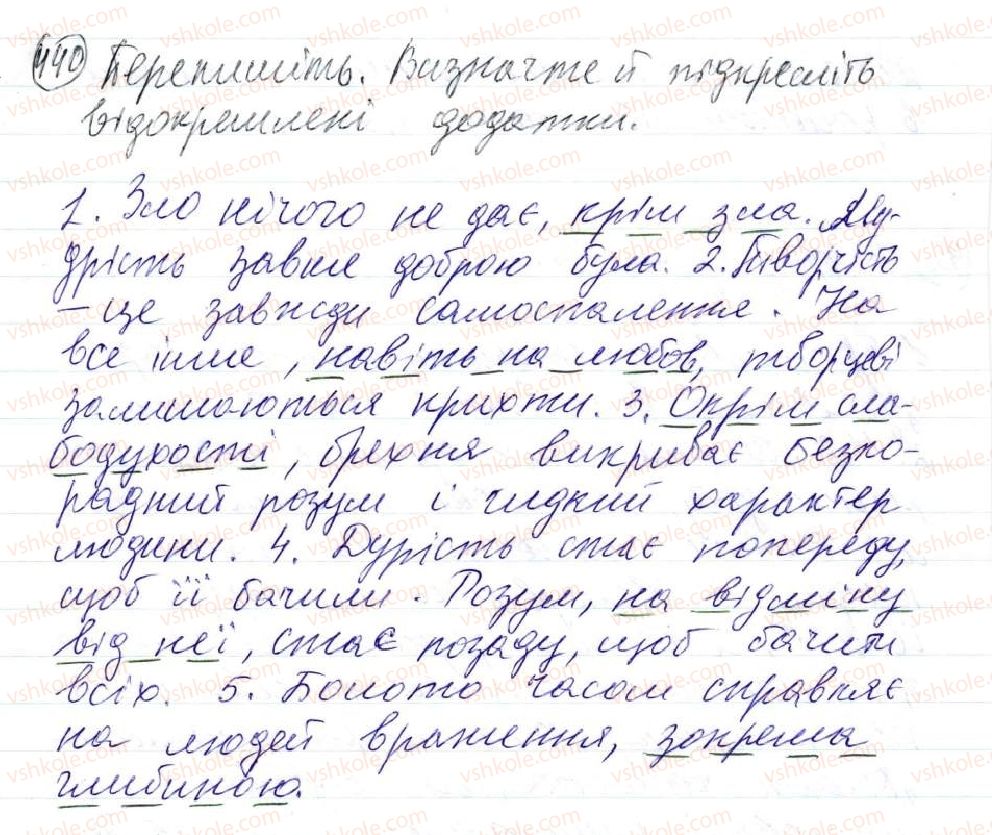 440 Перепишіть. Визначте й підкресліть
відокремлені додатки.
1. Зло нічого не дає, крім зла. Му-
дрість завше доброю була. 2. Творчість
– це завжди самоспалення. На
все інше, навіть на любов, творцеві
залишаються крихти. 3. Окрім сла-
бодухості, брехня викриває безпо-
радний розум і гидкий характер
людини. 4. Дурість стає попереду,
щоб її бачили. Розум, на відміну
від неї, стає позаду, щоб бачити
всіх. 5. Болото часом справляє
на людей враження, зокрема
глибиною.
vshkole.com